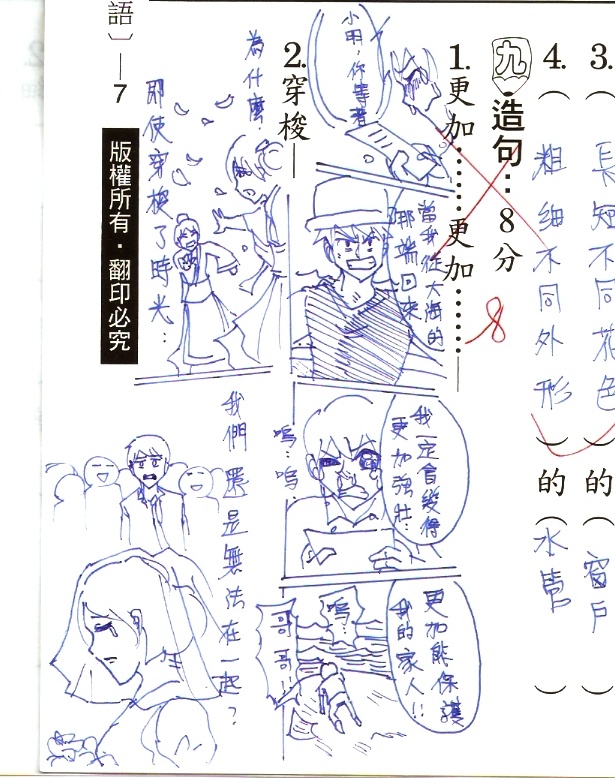 3.（長短不同花色）的（窗戶）
4.（粗細不同外形）的（水管）
九、造句：8分
8
1.更加……更加……
小明，你等著
當我從大海的
那端回來
我一定會變得
更加強壯…
更加能保護
我的家人!!
嗚…
哥哥!!
2.穿梭—
嗚…嗚
為什麼
即使穿梭了時光…
我們還是無法在一起？
語〕—7
版權所有．翻印必究